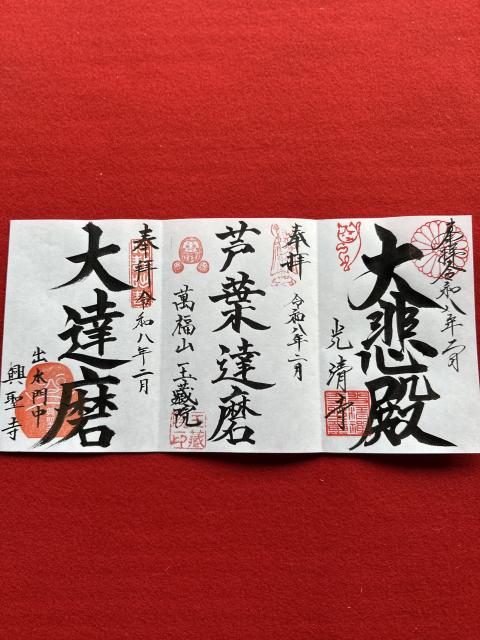 奉拝 令和八年二月
大悲殿
光清寺
奉拝
令和八年二月
芦葉達磨
萬福山 玉蔵院
奉拝 令和八年二月
大達磨
出水門中
興聖寺